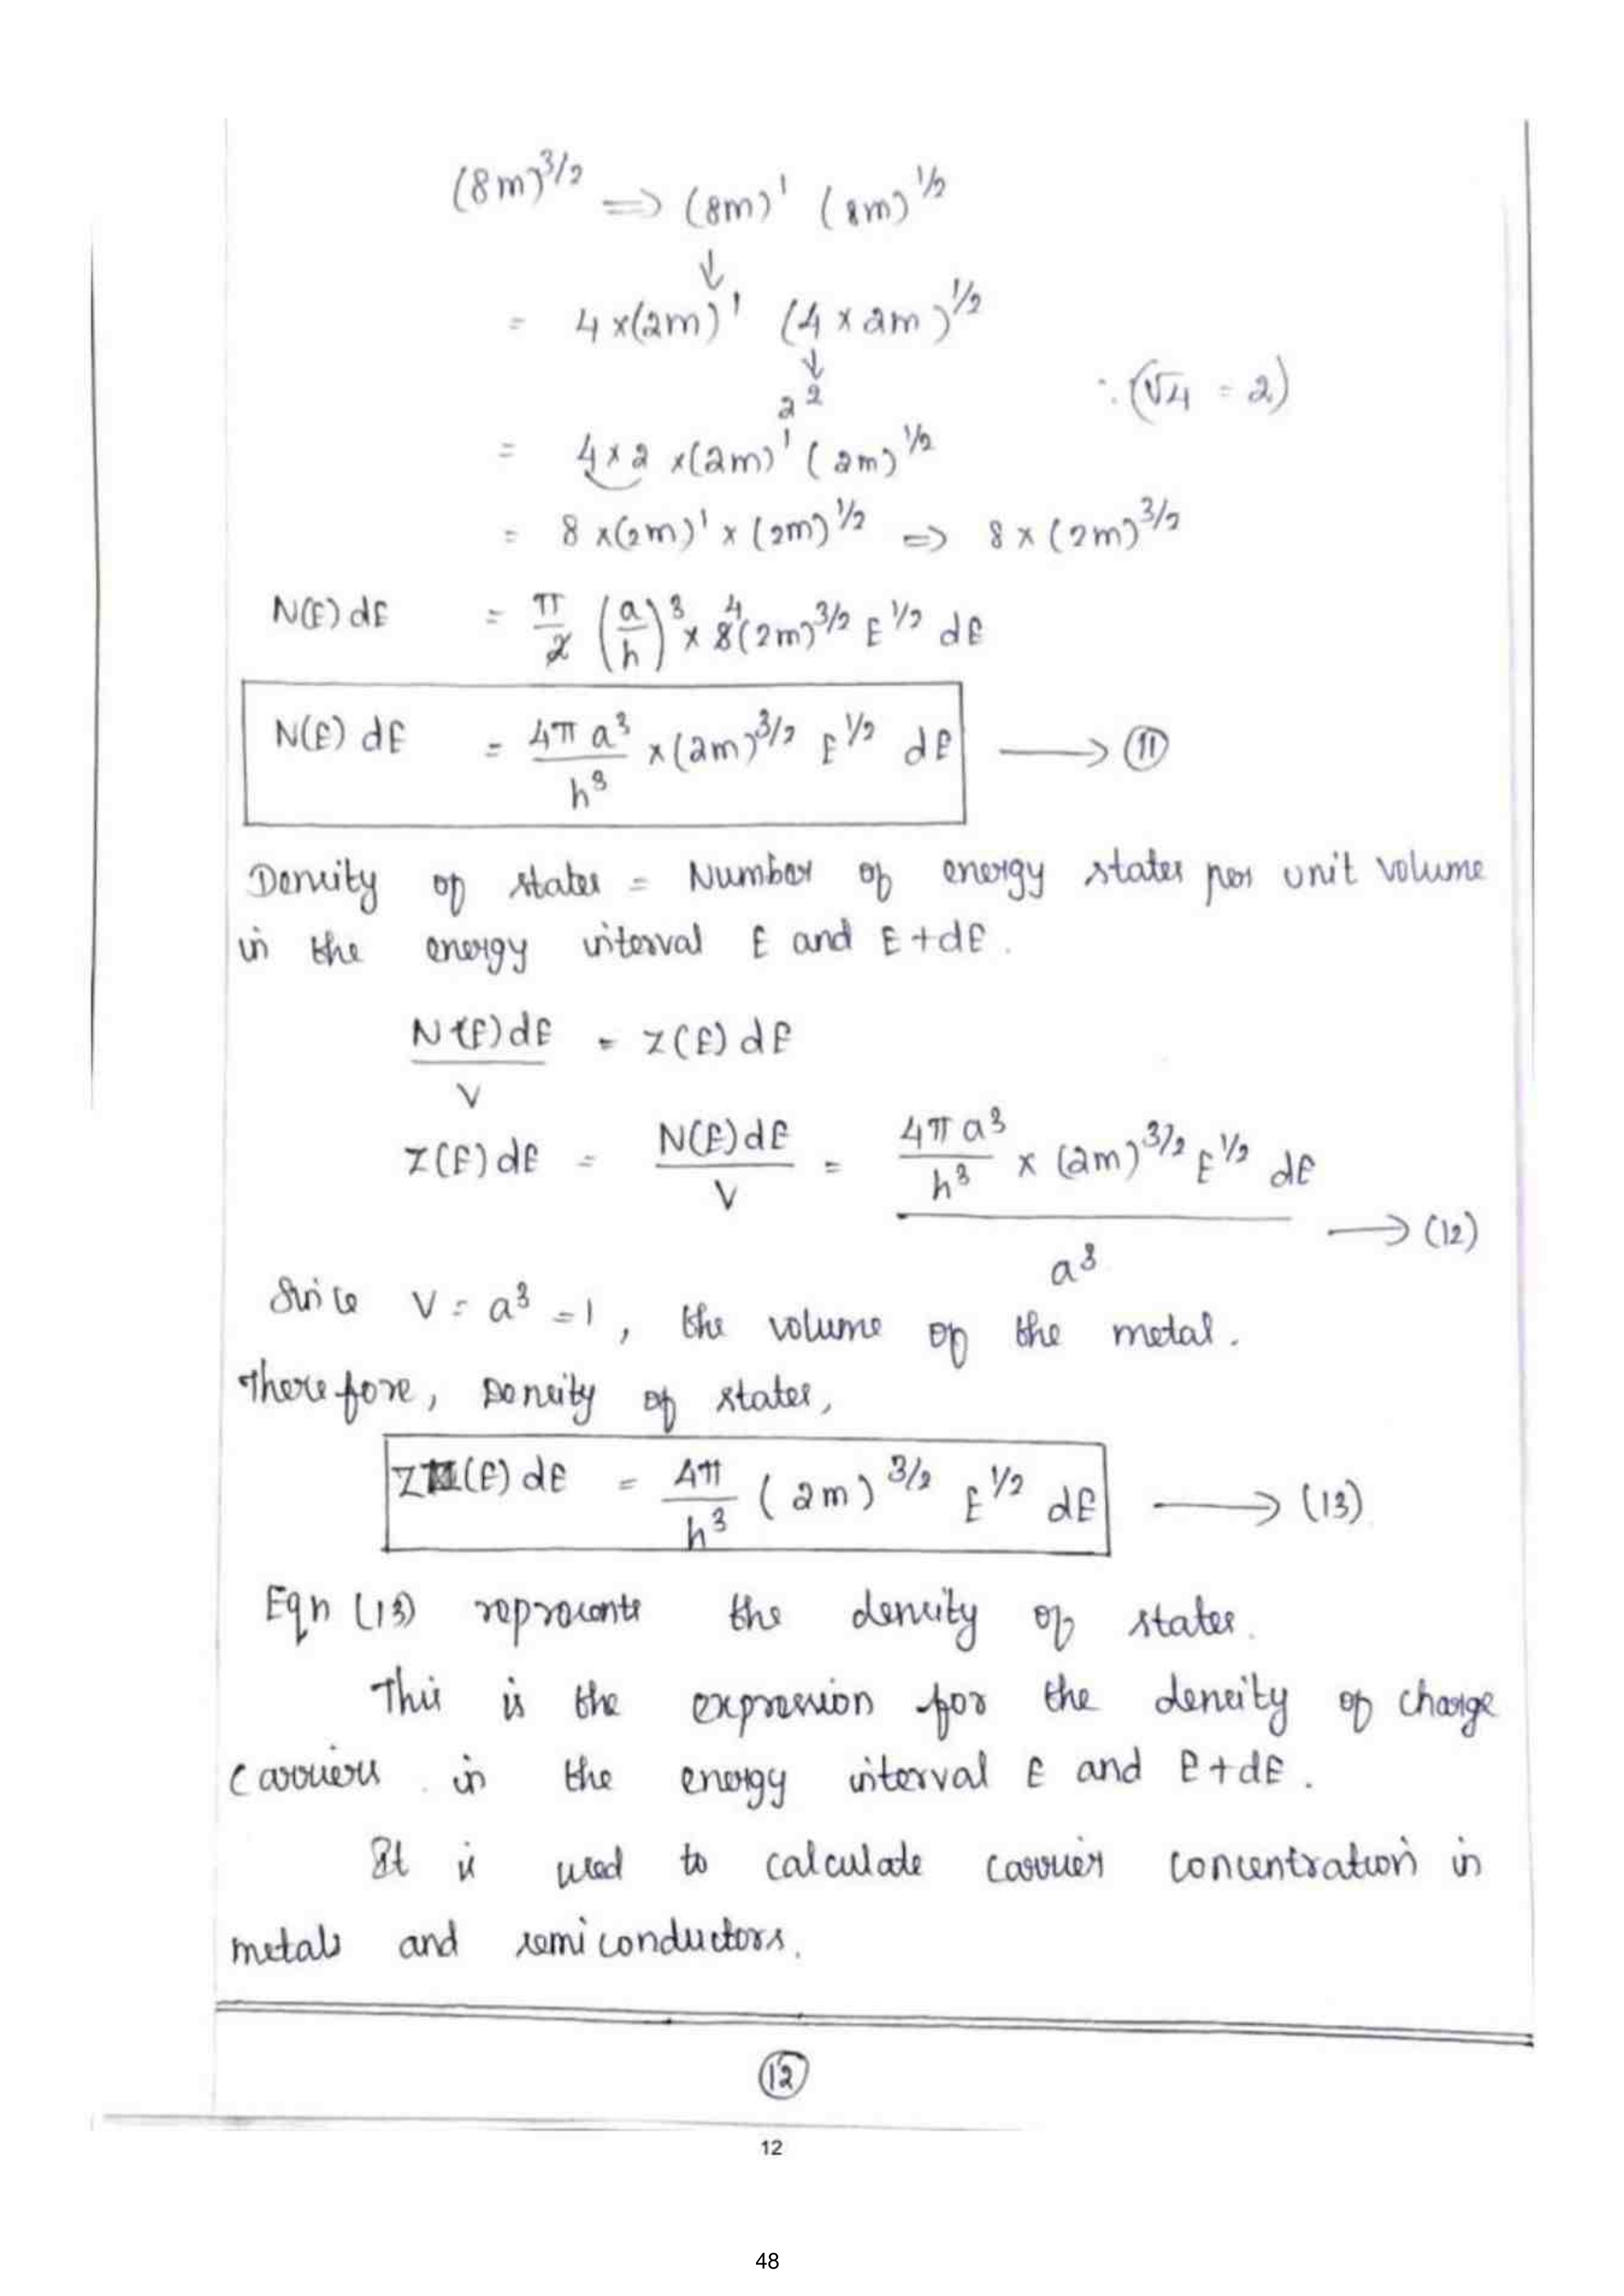 (8m)^3/2 ⟹ (8m)^1 (8m)^1/2
↓
= 4 × (2m)^1 (4 × 2m)^1/2
↓
2^2 ∴ (√4 = 2)
= 4 × 2 × (2m)^1 (2m)^1/2
= 8 × (2m)^1 × (2m)^1/2 ⟹ 8 × (2m)^3/2
N(E) dE = π/2 (a/h)^3 × 8 4 (2m)^3/2 E^1/2 dE
N(E) dE = 4π a^3 / h^3 × (2m)^3/2 E^1/2 dE ⟶ (11)
Density of states = Number of energy states per unit volume
in the energy interval E and E+dE.
N(E) dE / V = Z(E) dE
Z(E) dE = N(E) dE / V = 4π a^3 / h^3 × (2m)^3/2 E^1/2 dE / a^3 ⟶ (12)
Since V = a^3 = 1, the volume of the metal.
Therefore, Density of states,
Z(E) dE = 4π / h^3 (2m)^3/2 E^1/2 dE ⟶ (13)
Eqn (13) represents the density of states.
This is the expression for the density of charge
carriers in the energy interval E and E+dE.
It is used to calculate carrier concentration in
metals and semiconductors.
12
12
48